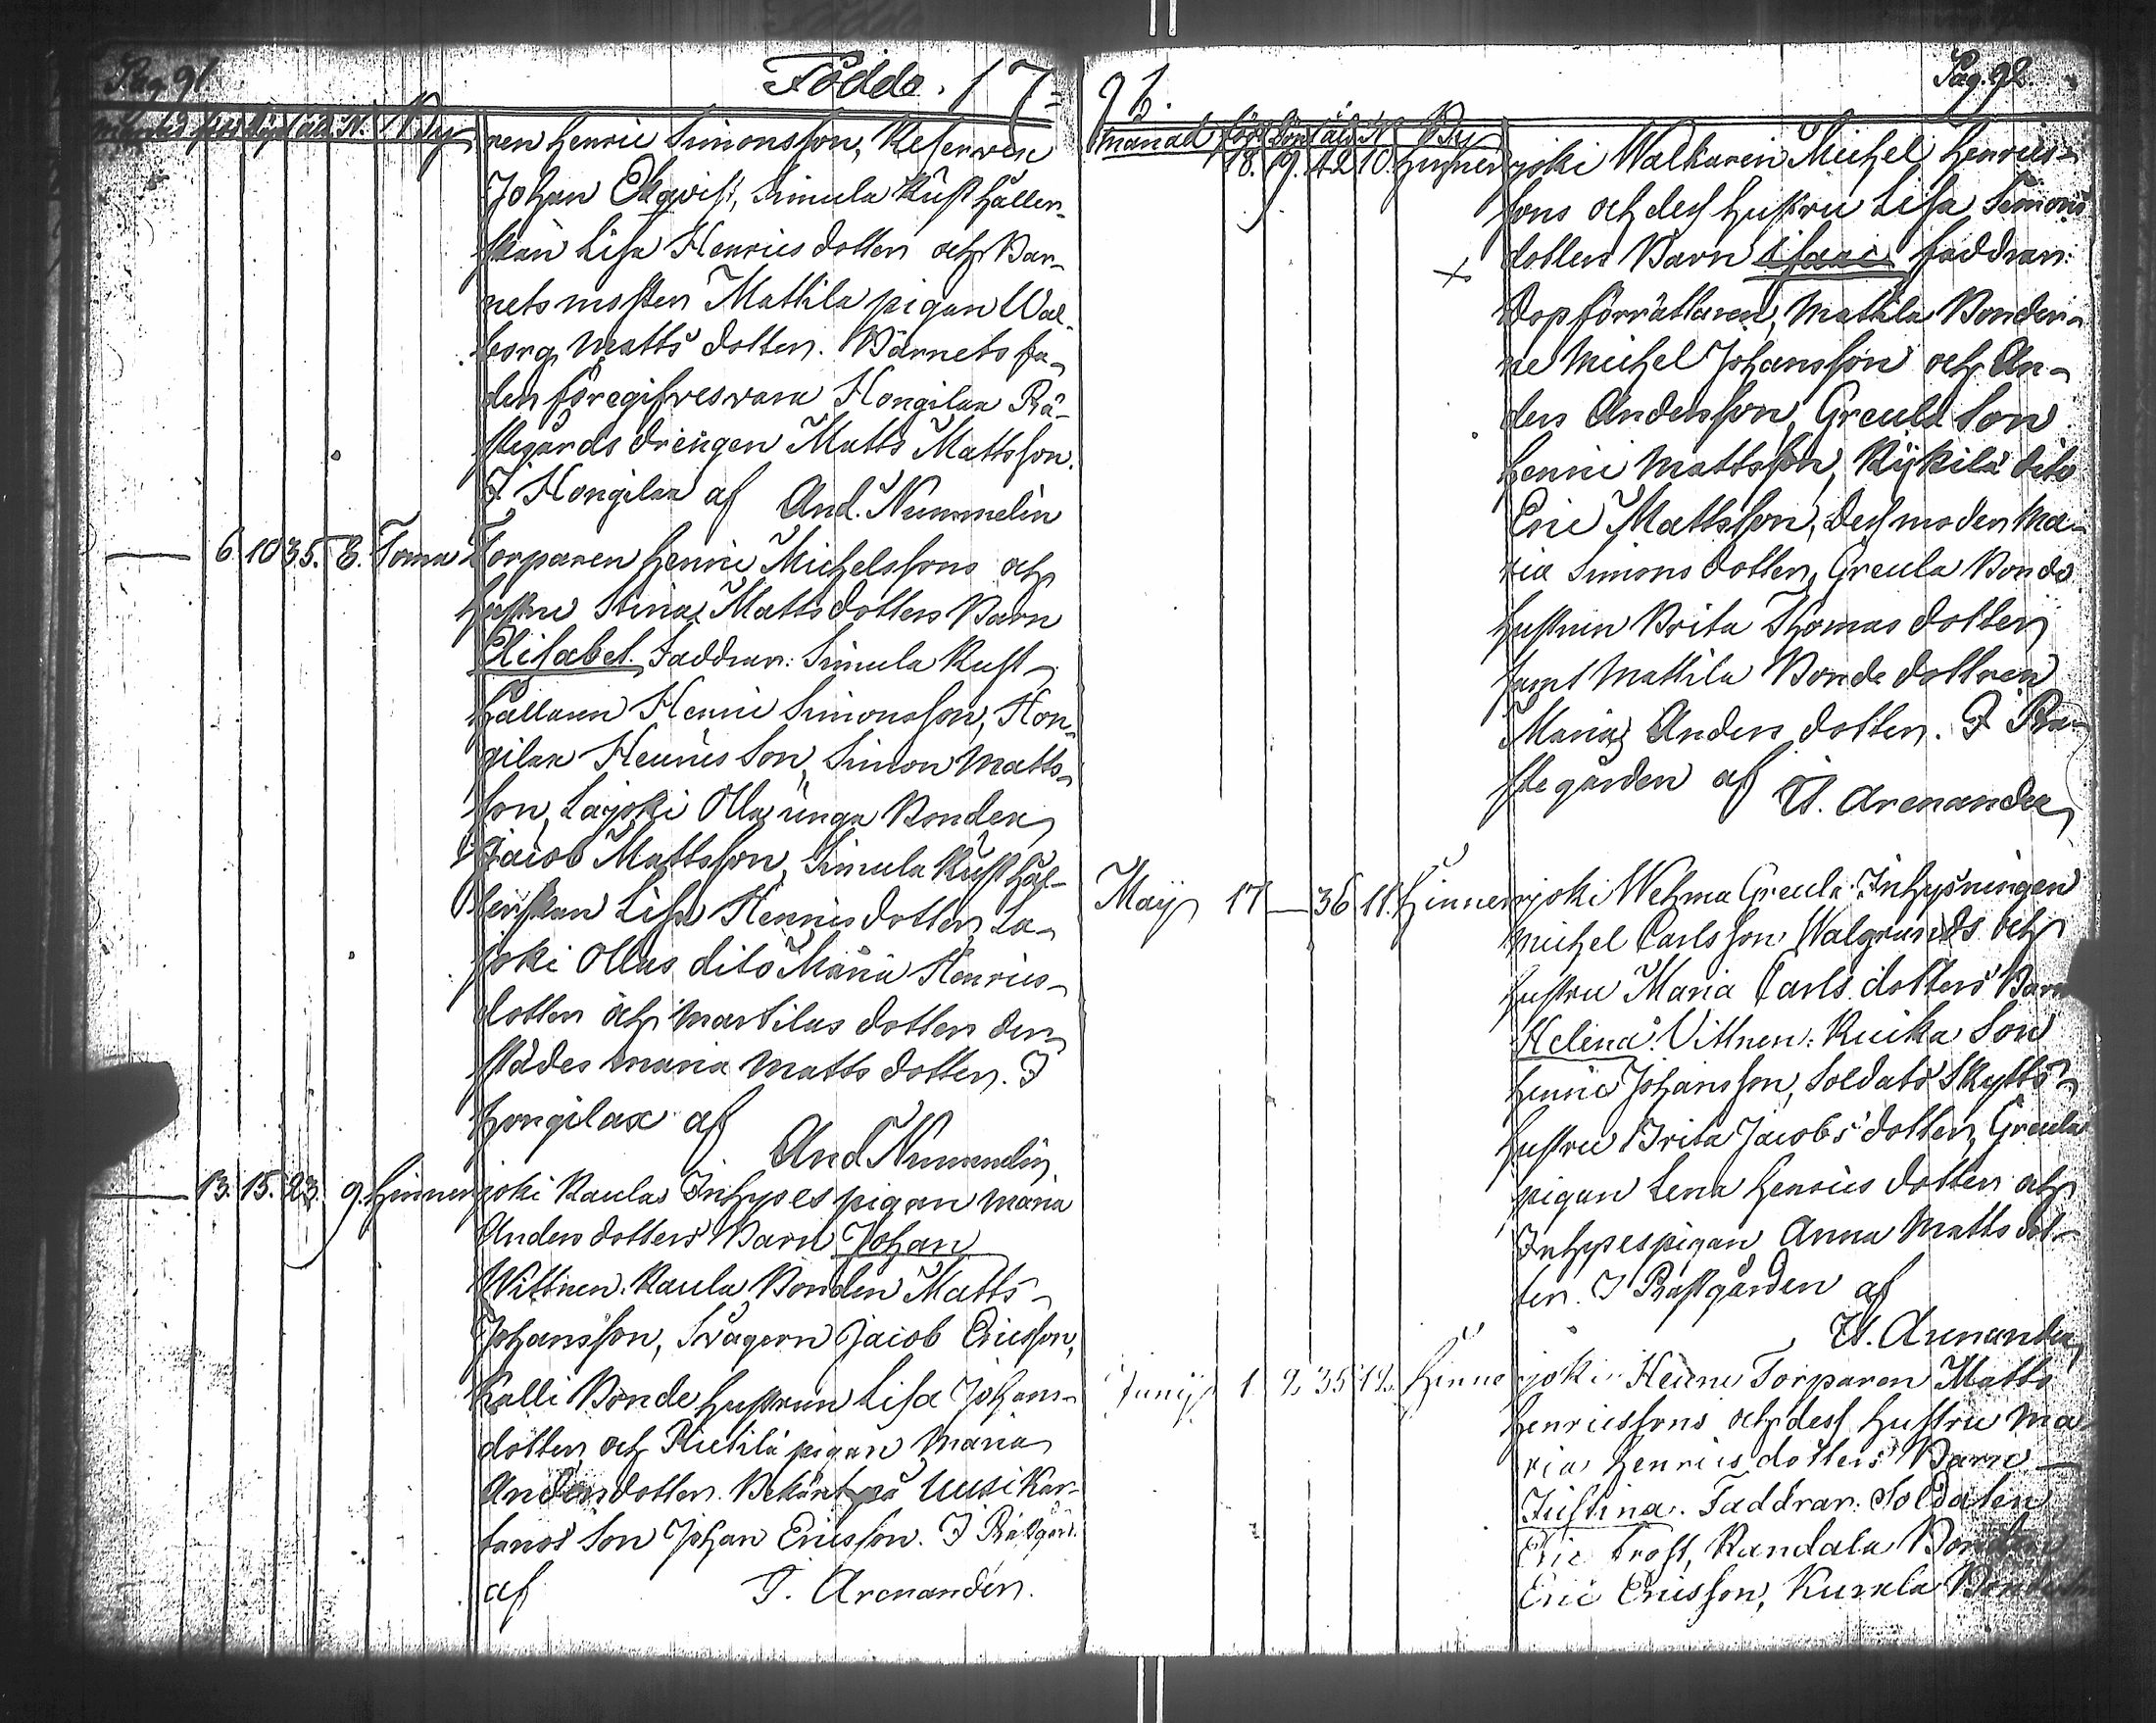 Pag 91
Födde. 17=
By
ren Henric Simonsson, Reserven
Johan Ekqvist, Simula Rusthåller-
skan Lisa Henricsdotter och Bar-
nets moster Mattila pigan Wal-
borg Matts dotter. Barnets fa-
der föregifves vara Hongilax Prä-
stegårds drängen Matts Mattsson.
I Hongilax af And. Nummelin
6. 10 35. 8. Torma Torparen Henric Michelssons och
hustru Stina Matts dotters Barn
Elisabet. Faddrar: Simula Rust-
hållaren Henric Simonsson, Hon-
gilax Henrics Son, Simon Matts-
son, Lajoki Olla unga Bonden
Jacob Mattsson, Simula Rusthål-
lerskan Lisa Henrics dotter, La-
joki Ollas dito Maria Henrics-
dotter och Martilas dotter der-
städes Maria Matts dotter. I
Hongilax af
And. Nummelin
13. 15. 23. 9. Hinnerjoki Kaulas Inhyses pigan Maria
Anders dotters Barn Johan
Wittnen: Kaula Bonden Matts
Johansson, Svagern Jacob Ericsson,
Kalli Bonde hustrun Lisa Johans-
dotter och Pietilä pigan Maria
Andersdotter. Bekänt på Uusi Kar-
tanos Son Johan Ericsson. I Prästgård.
af T. Arenander.
91.
Pag. 92.
Månad född Crist åld. N. By
18. 19. 42 10. Hinnerjoki Walkaren Michel Henrics-
sons och dess hustru Lisa Simons
dotters Barn Isaac faddrar:
Dopförrättaren, Mattila Bönder-
ne Michel Johansson och An-
ders Andersson, Greula Son
Henric Mattsson, Kykilä dito
Eric Mattsson, Dess moder Ma-
ria Simons dotter, Greula Bonde
hustrun Brita Thomas dotter
samt Mattila Bonde dottren
Maria Anders dotter. I Prä-
stegården af T. Arenander
Maij 17 — 36 11. Hinnerjoki Wehma Greula Inhysningen
Michel Carlsson Walgrunds och
hustru Maria Carls dotters Barn
Helena. Vittnen: Kuika Son
Henric Johansson, Soldats Skytts
hustru Brita Jacobs dotter, Greula
pigan Lena Henrics dotter och
Inhyses pigan Anna Matts dot-
ter. I Prästgården af
T. Arenander
Junij 1 2 35 12. Hinnerjoki Heine Torparen Matts
Henricssons och dess hustru Ma-
ria Henrics dotters Barn
Justina. Faddrar: Soldaten
Eric Frost, Kandala Bonden
Eric Ericsson, Kumla Bonden